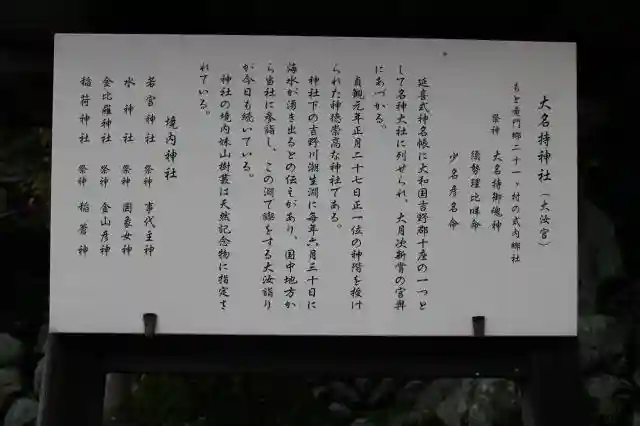 大名持神社（大汝宮）
もと竜門郷二十一ヶ村の式内郷社
祭神　大名持御魂神
須勢理比咩命
少名彦名命
延喜式神名帳に大和国吉野郡十座の一つと
して名神大社に列せられ、大月次新嘗の官幣
にあづかる。
貞観元年正月二十七日正一位の神階を授け
られた神徳崇高な神社である。
神社下の吉野川潮生淵に毎年六月三十日に
海水が湧き出るとの伝えがあり、国中地方か
ら当社に参詣し、この淵で禊をする大汝詣り
が今日も続いている。
神社の境内妹山樹叢は天然記念物に指定さ
れている。
境内神社
若宮神社　祭神　事代主神
水神社　祭神　罔象女神
金比羅神社　祭神　金山彦神
稲荷神社　祭神　稲倉神